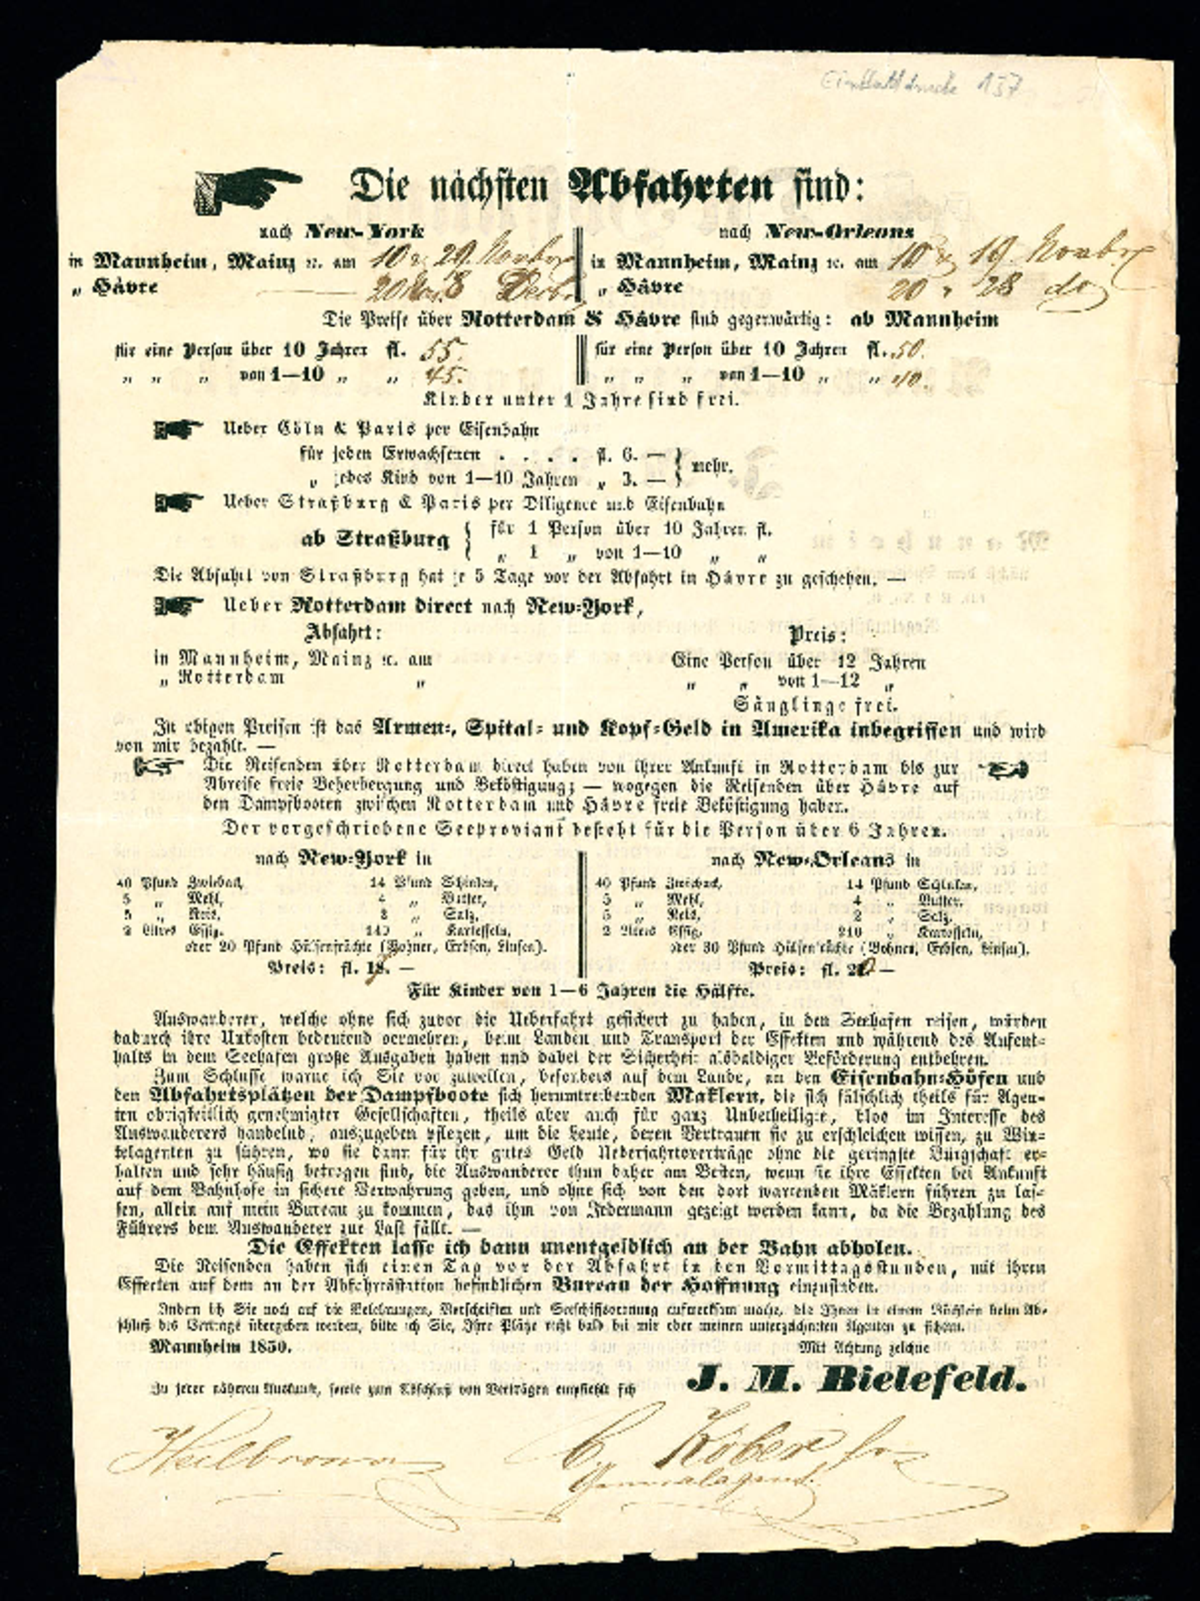 Einblattdrucke 137
Die nächsten Abfahrten sind:
nach New-York
in Mannheim, Mainz ꝛc. am 10 & 29. Novbr
„ Hâvre 20 Nov. 8 Decbr
nach New-Orleans
in Mannheim, Mainz ꝛc. am 10 & 19. Novbr
„ Hâvre 20 „ 28 do
Die Preise über Rotterdam & Hâvre sind gegenwärtig: ab Mannheim
für eine Person über 10 Jahren fl. 55.
„ „ „ von 1—10 „ „ 45.
für eine Person über 10 Jahren fl. 50.
„ „ „ von 1—10 „ „ 40.
Kinder unter 1 Jahre sind frei.
Ueber Cöln & Paris per Eisenbahn
für jeden Erwachsenen . . . . fl. 6. — } mehr.
„ jedes Kind von 1—10 Jahren „ 3. — }
Ueber Straßburg & Paris per Diligence und Eisenbahn
ab Straßburg { für 1 Person über 10 Jahren fl.
„ 1 „ von 1—10 „ „
Die Abfahrt von Straßburg hat je 5 Tage vor der Abfahrt in Hâvre zu geschehen. —
Ueber Rotterdam direct nach New-York,
Abfahrt:
in Mannheim, Mainz ꝛc. am
„ Rotterdam „
Preis:
Eine Person über 12 Jahren
„ „ von 1—12 „
Säuglinge frei.
In obigen Preisen ist das Armen-, Spital- und Kopf-Geld in Amerika inbegriffen und wird
von mir bezahlt. —
Die Reisenden über Rotterdam direct haben von ihrer Ankunft in Rotterdam bis zur
Abreise freie Beherbergung und Beköstigung; — wogegen die Reisenden über Hâvre auf
den Dampfbooten zwischen Rotterdam und Hâvre freie Beköstigung haben.
Der vorgeschriebene Seeproviant besteht für die Person über 6 Jahren.
nach New-York in
40 Pfund Zwieback, 14 Pfund Schinken,
5 „ Mehl, 4 „ Butter,
5 „ Reis, 2 „ Salz,
2 Litres Essig, 140 „ Kartoffeln,
oder 20 Pfund Hülsenfrüchte (Bohnen, Erbsen, Linsen).
Preis: fl. 18. —
nach New-Orleans in
40 Pfund Zwieback, 14 Pfund Schinken,
5 „ Mehl, 4 „ Butter,
5 „ Reis, 2 „ Salz,
2 Litres Essig, 210 „ Kartoffeln,
oder 30 Pfund Hülsenfrüchte (Bohnen, Erbsen, Linsen).
Preis: fl. 20 —
Für Kinder von 1—6 Jahren die Hälfte.
Auswanderer, welche ohne sich zuvor die Ueberfahrt gesichert zu haben, in den Seehafen reisen, würden
dadurch ihre Unkosten bedeutend vermehren, beim Landen und Transport der Effekten und während des Aufent-
halts in dem Seehafen große Ausgaben haben und dabei der Sicherheit alsbaldiger Beförderung entbehren.
Zum Schlusse warne ich Sie vor zuweilen, besonders auf dem Lande, an den Eisenbahn-Höfen und
den Abfahrtsplätzen der Dampfboote sich herumtreibenden Maklern, die sich fälschlich theils für Agen-
ten obrigkeitlich genehmigter Gesellschaften, theils aber auch für ganz Unbetheiligte, blos im Interesse des
Auswanderers handelnd, auszugeben pflegen, um die Leute, deren Vertrauen sie zu erschleichen wissen, zu Win-
kelagenten zu führen, wo sie dann für ihr gutes Geld Ueberfahrtsverträge ohne die geringste Bürgschaft er-
halten und sehr häufig betrogen sind, die Auswanderer thun daher am Besten, wenn sie ihre Effekten bei Ankunft
auf dem Bahnhofe in sichere Verwahrung geben, und ohne sich von den dort wartenden Mäklern führen zu las-
sen, allein auf mein Bureau zu kommen, das ihm von Jedermann gezeigt werden kann, da die Bezahlung des
Führers dem Auswanderer zur Last fällt. —
Die Effekten lasse ich dann unentgeldlich an der Bahn abholen.
Die Reisenden haben sich einen Tag vor der Abfahrt in den Vormittagsstunden, mit ihren
Effecten auf dem an der Abfahrtsstation befindlichen Bureau der Hoffnung einzufinden.
Indem ich Sie noch auf die Belehrungen, Vorschriften und Seeschiffsordnung aufmerksam mache, die Ihnen in einem Büchlein beim Ab-
schluß des Vertrags übergeben werden, bitte ich Sie, Ihre Plätze recht bald bei mir oder meinen unterzeichneten Agenten zu sichern.
Mannheim 1850. Mit Achtung zeichne
J. M. Bielefeld.
Zu jeder näheren Auskunft, sowie zum Abschluß von Verträgen empfiehlt sich
Heilbronn C. Köber
Generalagent.